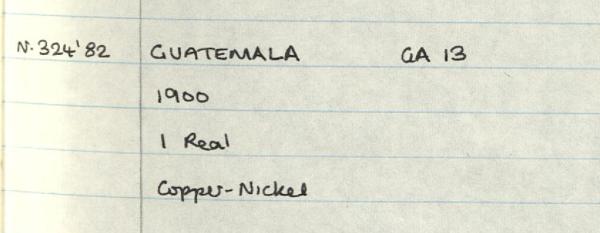 N.324'82 GUATEMALA GA 13
1900
1 Real
Copper-Nickel